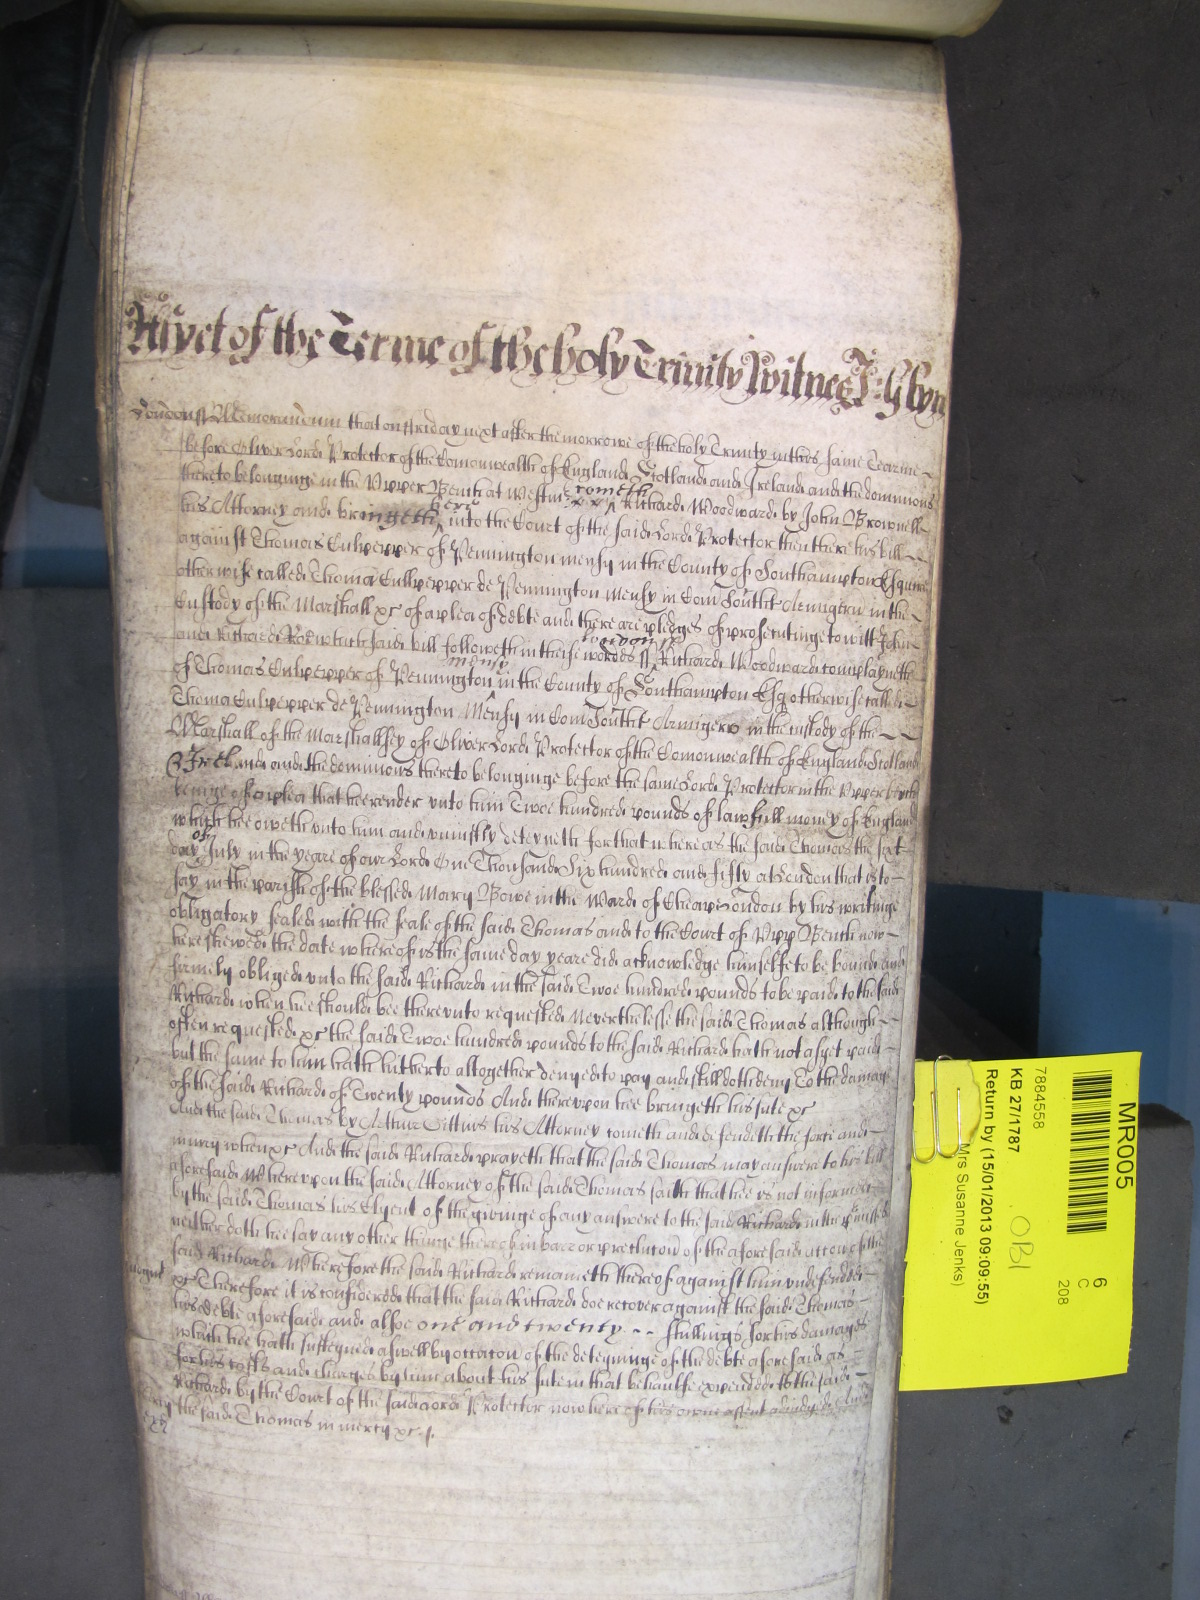 As yet of the Terme of the holy Trinity Witnes J: Glyn
London ss Memorandum that on ffriday next after the morrowe of the holy Trinity in this same Tearme
before Oliver Lord Protector of the Comonwealth of England Scotland and Ireland and the dominions
thereto belonginge in the Upper Bench at Westmr cometh Richard Woodward by John Brownell
his Attorney and bringeth here into the Court of the said Lord Protector then there his bill
against Thomas Culpepper of Pennington mensy in the County of Southampton Esquire
otherwise called Thoma Cullpepper de Pennington Mensy in Com Southt Armigeru in the
Custody of the Marshall xc of a plea of debte and there are pledges of prosecutinge to witt John
and Richard Roe which said bill followeth in theise words ss London ss Richard Woodward complayneth
of Thomas Culpepper of Pennington mensy in the County of Southampton Esq otherwise called
Thoma Culpepper de Pennington Mensy in Com Southt Armigero in the custody of the
Marshall of the Marshallsey of Oliver Lord Protector of the Comonwealth of England Scotland
& Ireland and the dominions thereto belonginge before the same Lord Protector in the Upper bench
beinge of a plea that hee render unto him Twoe hundred pounds of lawfull money of England
which hee oweth unto him and uniustly deteyneth for that whereas the said Thomas the sixt
day of July in the yeare of our Lord One Thousand Six hundred and fifty at London that is to
say in the parish of the blessed Mary Bowe in the Ward of Cheap London by his writinge
obligatory sealed with the seale of the said Thomas and to the Court of Upp Bench now
here shewed the date whereof is the same day yeare did acknowledge himselfe to be bound and
firmely obliged unto the said Richard in the said Twoe hundred pounds to be paid to the said
Richard when hee should bee thereunto requested Neverthelesse the said Thomas although
often requested xc the said Twoe hundred pounds to the said Richard hath not as yet paid
but the same to him hath hitherto altogether denyed to pay and still doth deny To the damage
of the said Richard of Twenty pounds And thereupon hee bringeth his sute xc
And the said Thomas by Arthur Gittins his Attorney cometh and defendeth the force and
iniury when xc And the said Richard prayeth that the said Thomas may answere to his bill
aforesaid Whereupon the said Attorney of the said Thomas saith that hee is not informed
by the said Thomas his Clyent of the giveinge of any answere to the said Richard in the pmisses
neither doth hee say any other thinge thereof in barr or preclusion of the aforesaid accon of the
said Richard Wherefore the said Richard remaineth thereof against him undefended
xc Therefore it is considered that the said Richard doe recover against the said Thomas
his debte aforesaid and alsoe one and twenty -- shillings for his damages
which hee hath susteyned aswell by occasion of the deteyninge of the debte aforesaid as
for his costs and charges by him about his sute in that behaulfe expended to the said
Richard by the Court of the said Lord Protector now here of his owne assent adiudged And
the said Thomas in mercy xc
MR005
6
C
208
7884558
KB 27/1787
Return by (15/01/2013 09:09:55)
Mrs Susanne Jenks)
OBI